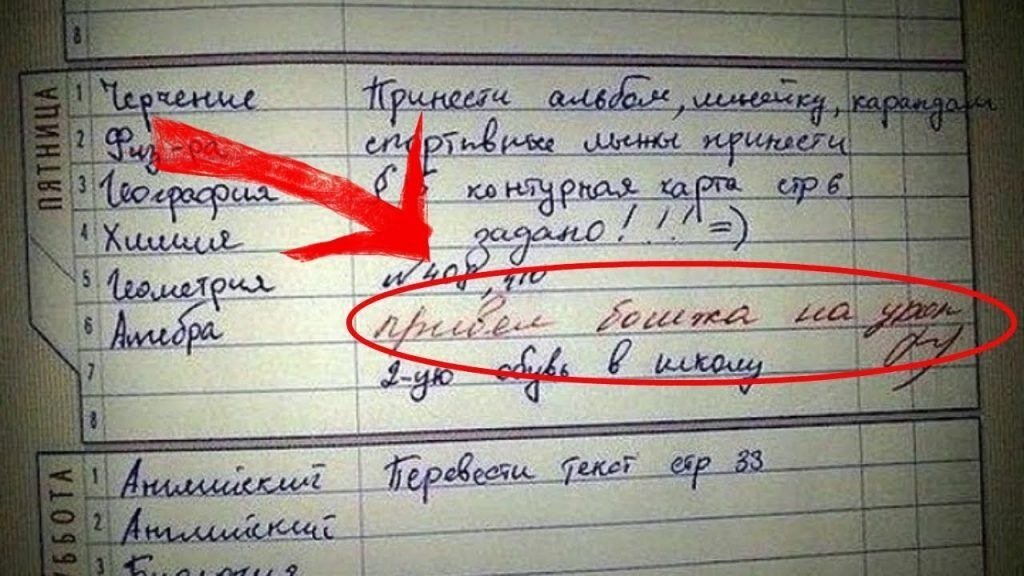 8
ПЯТНИЦА
1 Черчение Принести альбом, линейку, карандаш
2 Физ-ра спортивные лыжи принести
3 География контурная карта стр 6
4 Химия задано!!! =)
5 Геометрия № 408, 410
6 Алгебра привёл бомжа на урок
7 2-ую обувь в школу
8
СУББОТА
1 Английский Перевести текст стр 33
2 Английский
3 Биология